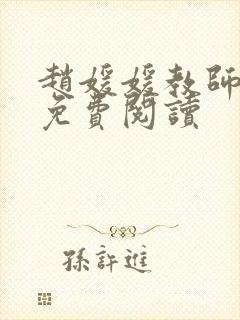 趙媛媛教師
免費閱讀
孫許進